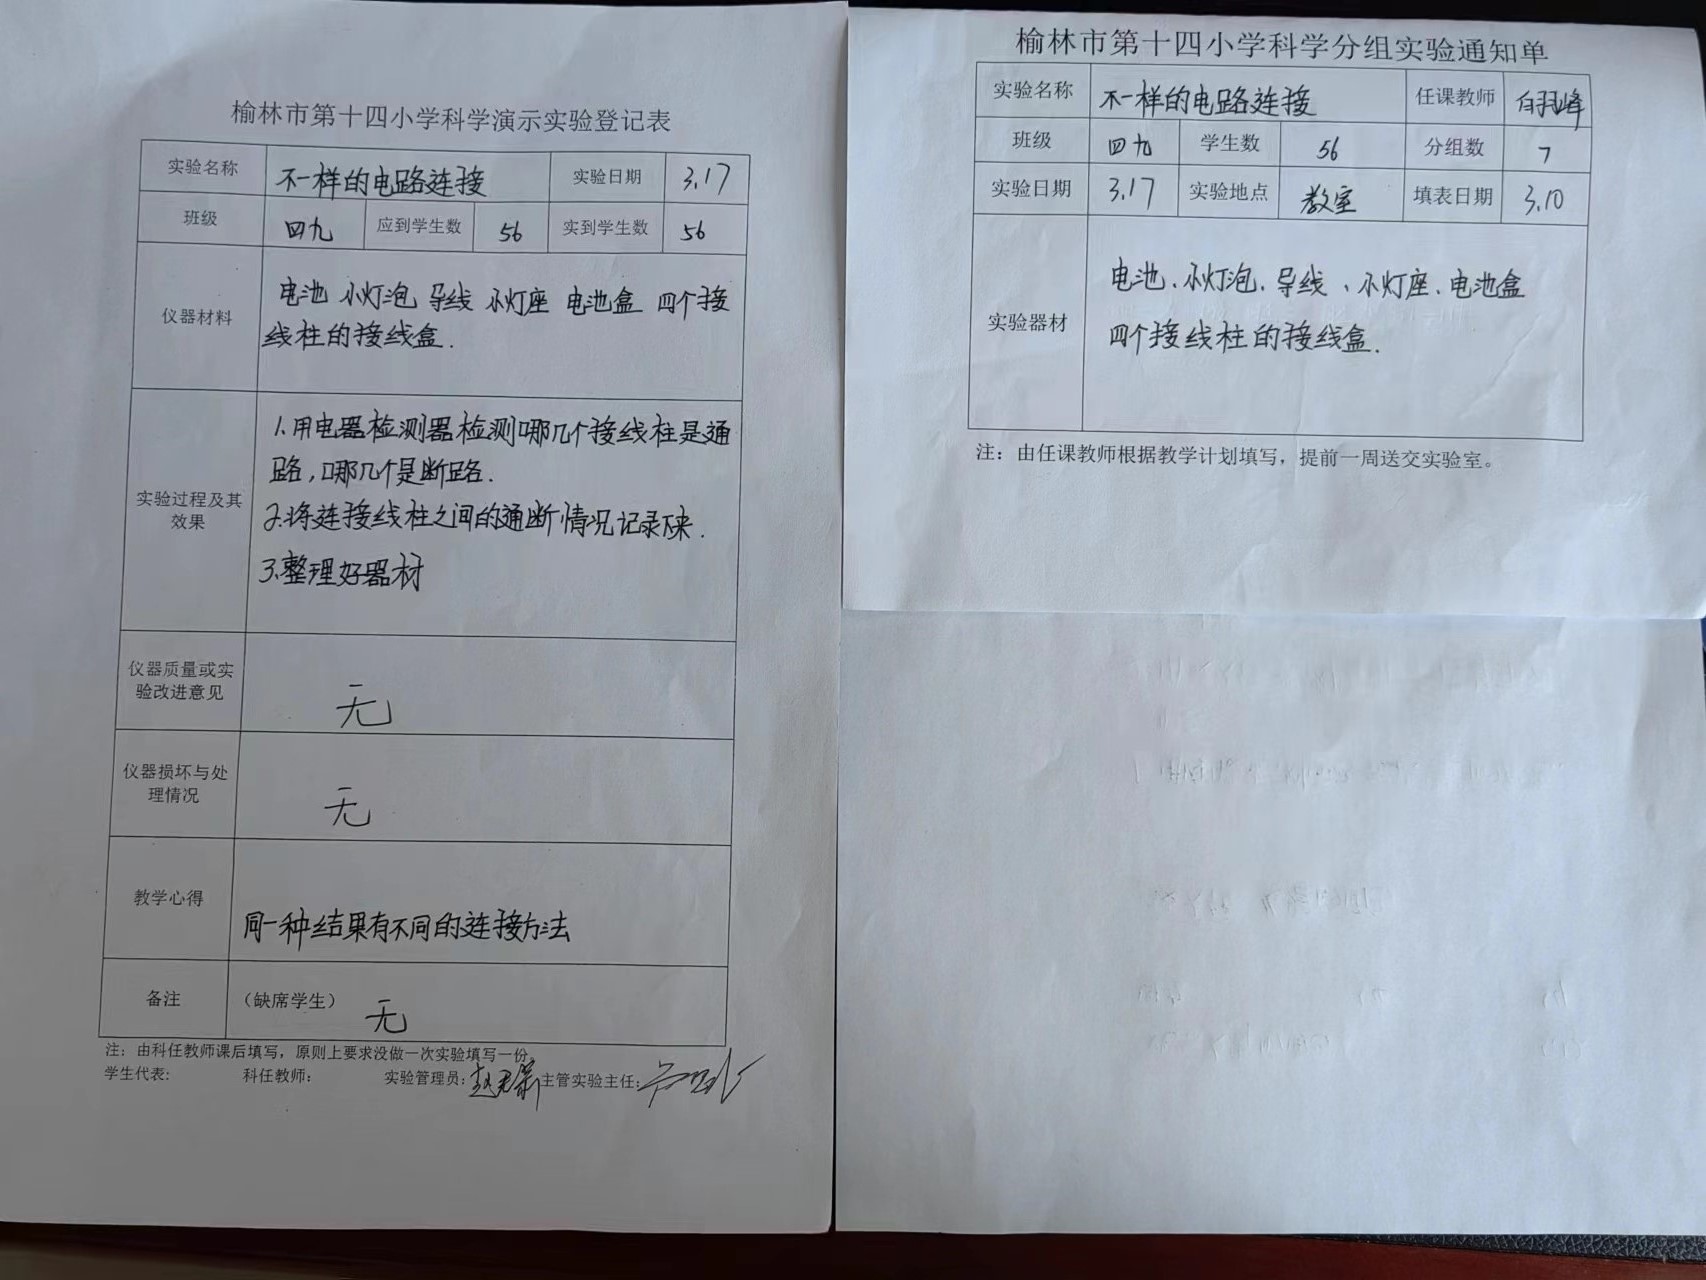 榆林市第十四小学科学演示实验登记表
实验名称 不一样的电路连接 实验日期 3.17
班级 四九 应到学生数 56 实到学生数 56
仪器材料
电池 小灯泡 导线 小灯座 电池盒 四个接
线柱的接线盒.
实验过程及其
效果
1.用电器检测器检测哪几个接线柱是通
路,哪几个是断路.
2.将连接线柱之间的通断情况记录下来.
3.整理好器材
仪器质量或实
验改进意见
无
仪器损坏与处
理情况
无
教学心得
同一种结果有不同的连接方法
备注 （缺席学生） 无
注：由科任教师课后填写，原则上要求没做一次实验填写一份。
学生代表： 科任教师： 实验管理员： 主管实验主任：
榆林市第十四小学科学分组实验通知单
实验名称 不一样的电路连接 任课教师
班级 四九 学生数 56 分组数 7
实验日期 3.17 实验地点 教室 填表日期 3.10
实验器材
电池、小灯泡、导线、小灯座、电池盒
四个接线柱的接线盒.
注：由任课教师根据教学计划填写，提前一周送交实验室。